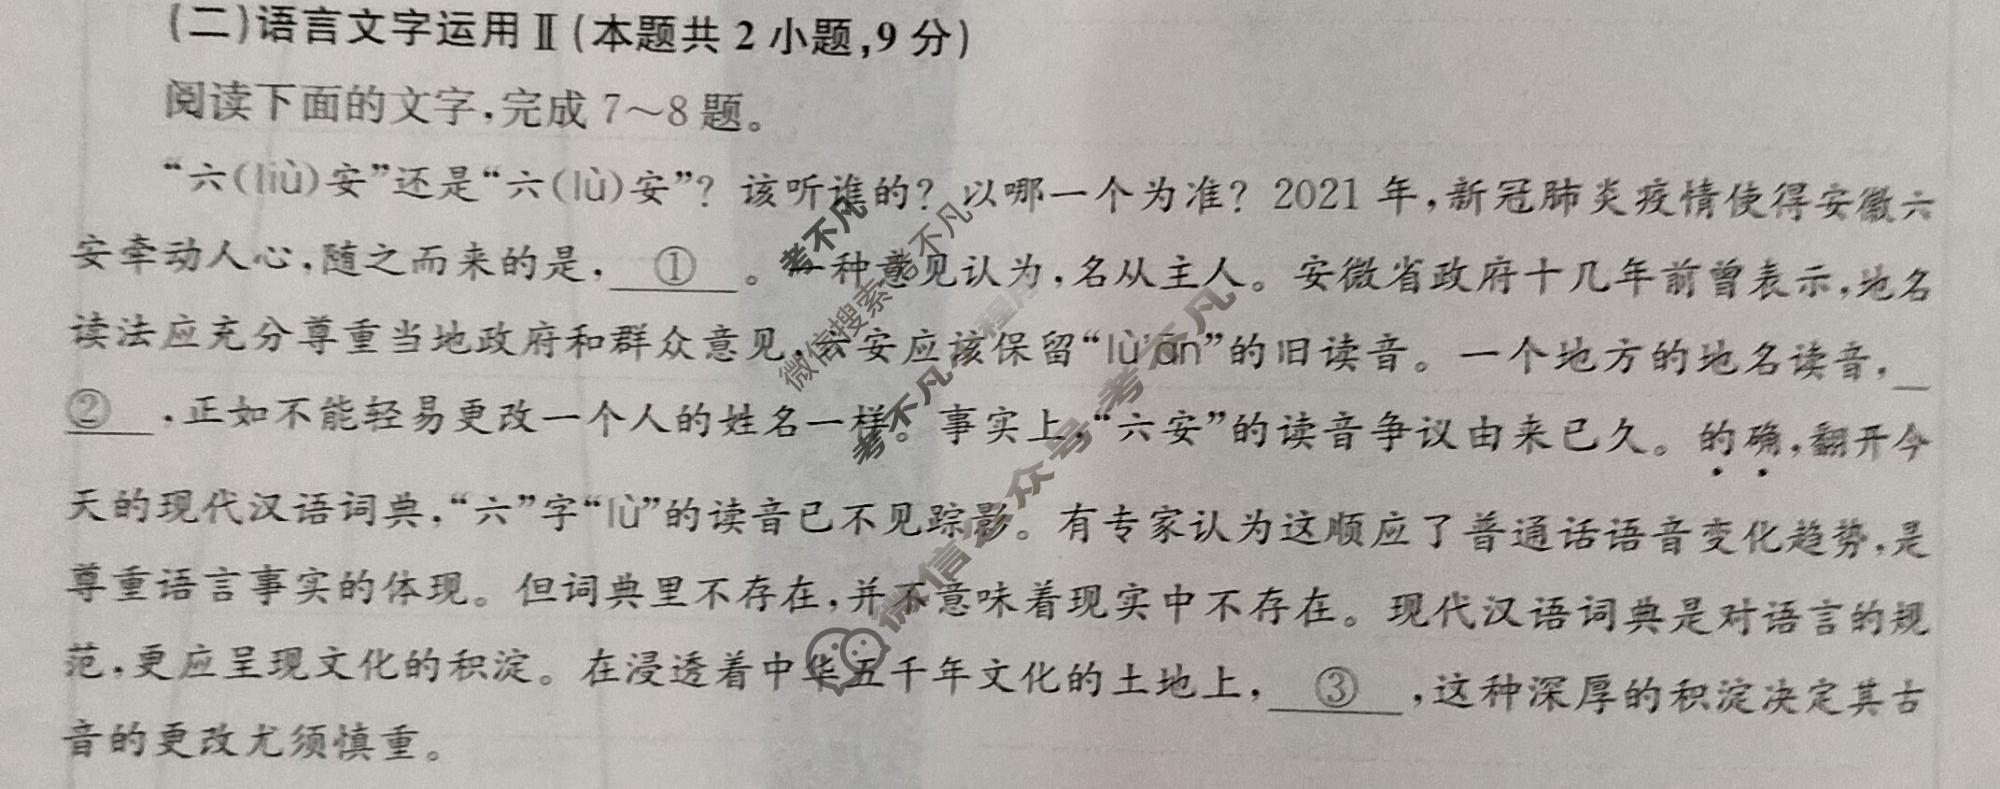 (二)语言文字运用Ⅱ(本题共 2 小题,9 分)
阅读下面的文字,完成 7～8 题。
“六(liù)安”还是“六(lù)安”? 该听谁的? 以哪一个为准? 2021 年,新冠肺炎疫情使得安徽六
安牵动人心,随之而来的是, ① 。一种意见认为,名从主人。安徽省政府十几年前曾表示,地名
读法应充分尊重当地政府和群众意见,六安应该保留“lù'ān”的旧读音。一个地方的地名读音,
② ,正如不能轻易更改一个人的姓名一样。事实上,“六安”的读音争议由来已久。的确,翻开今
天的现代汉语词典,“六”字“lù”的读音已不见踪影。有专家认为这顺应了普通话语音变化趋势,是
尊重语言事实的体现。但词典里不存在,并不意味着现实中不存在。现代汉语词典是对语言的规
范,更应呈现文化的积淀。在浸透着中华五千年文化的土地上, ③ ,这种深厚的积淀决定其古
音的更改尤须慎重。
考不凡
考不凡
微信搜索
程序
考不凡
微信公众号 考不凡